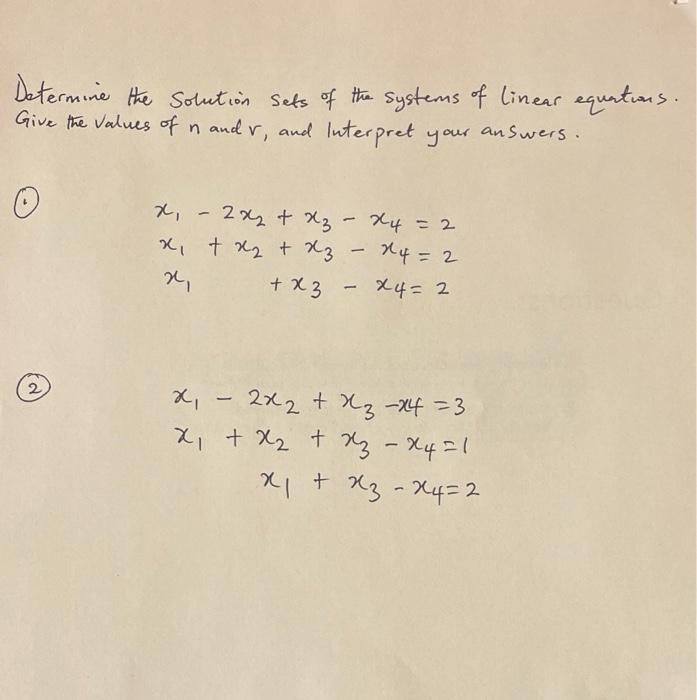 Determine the Solution Sets of the Systems of linear equations.
Give the Values of n and r, and Interpret your answers.
①
x₁ - 2x₂ + x₃ - x₄ = 2
x₁ + x₂ + x₃ - x₄ = 2
x₁ + x₃ - x₄ = 2
②
x₁ - 2x₂ + x₃ - x4 = 3
x₁ + x₂ + x₃ - x₄ = 1
x₁ + x₃ - x₄ = 2